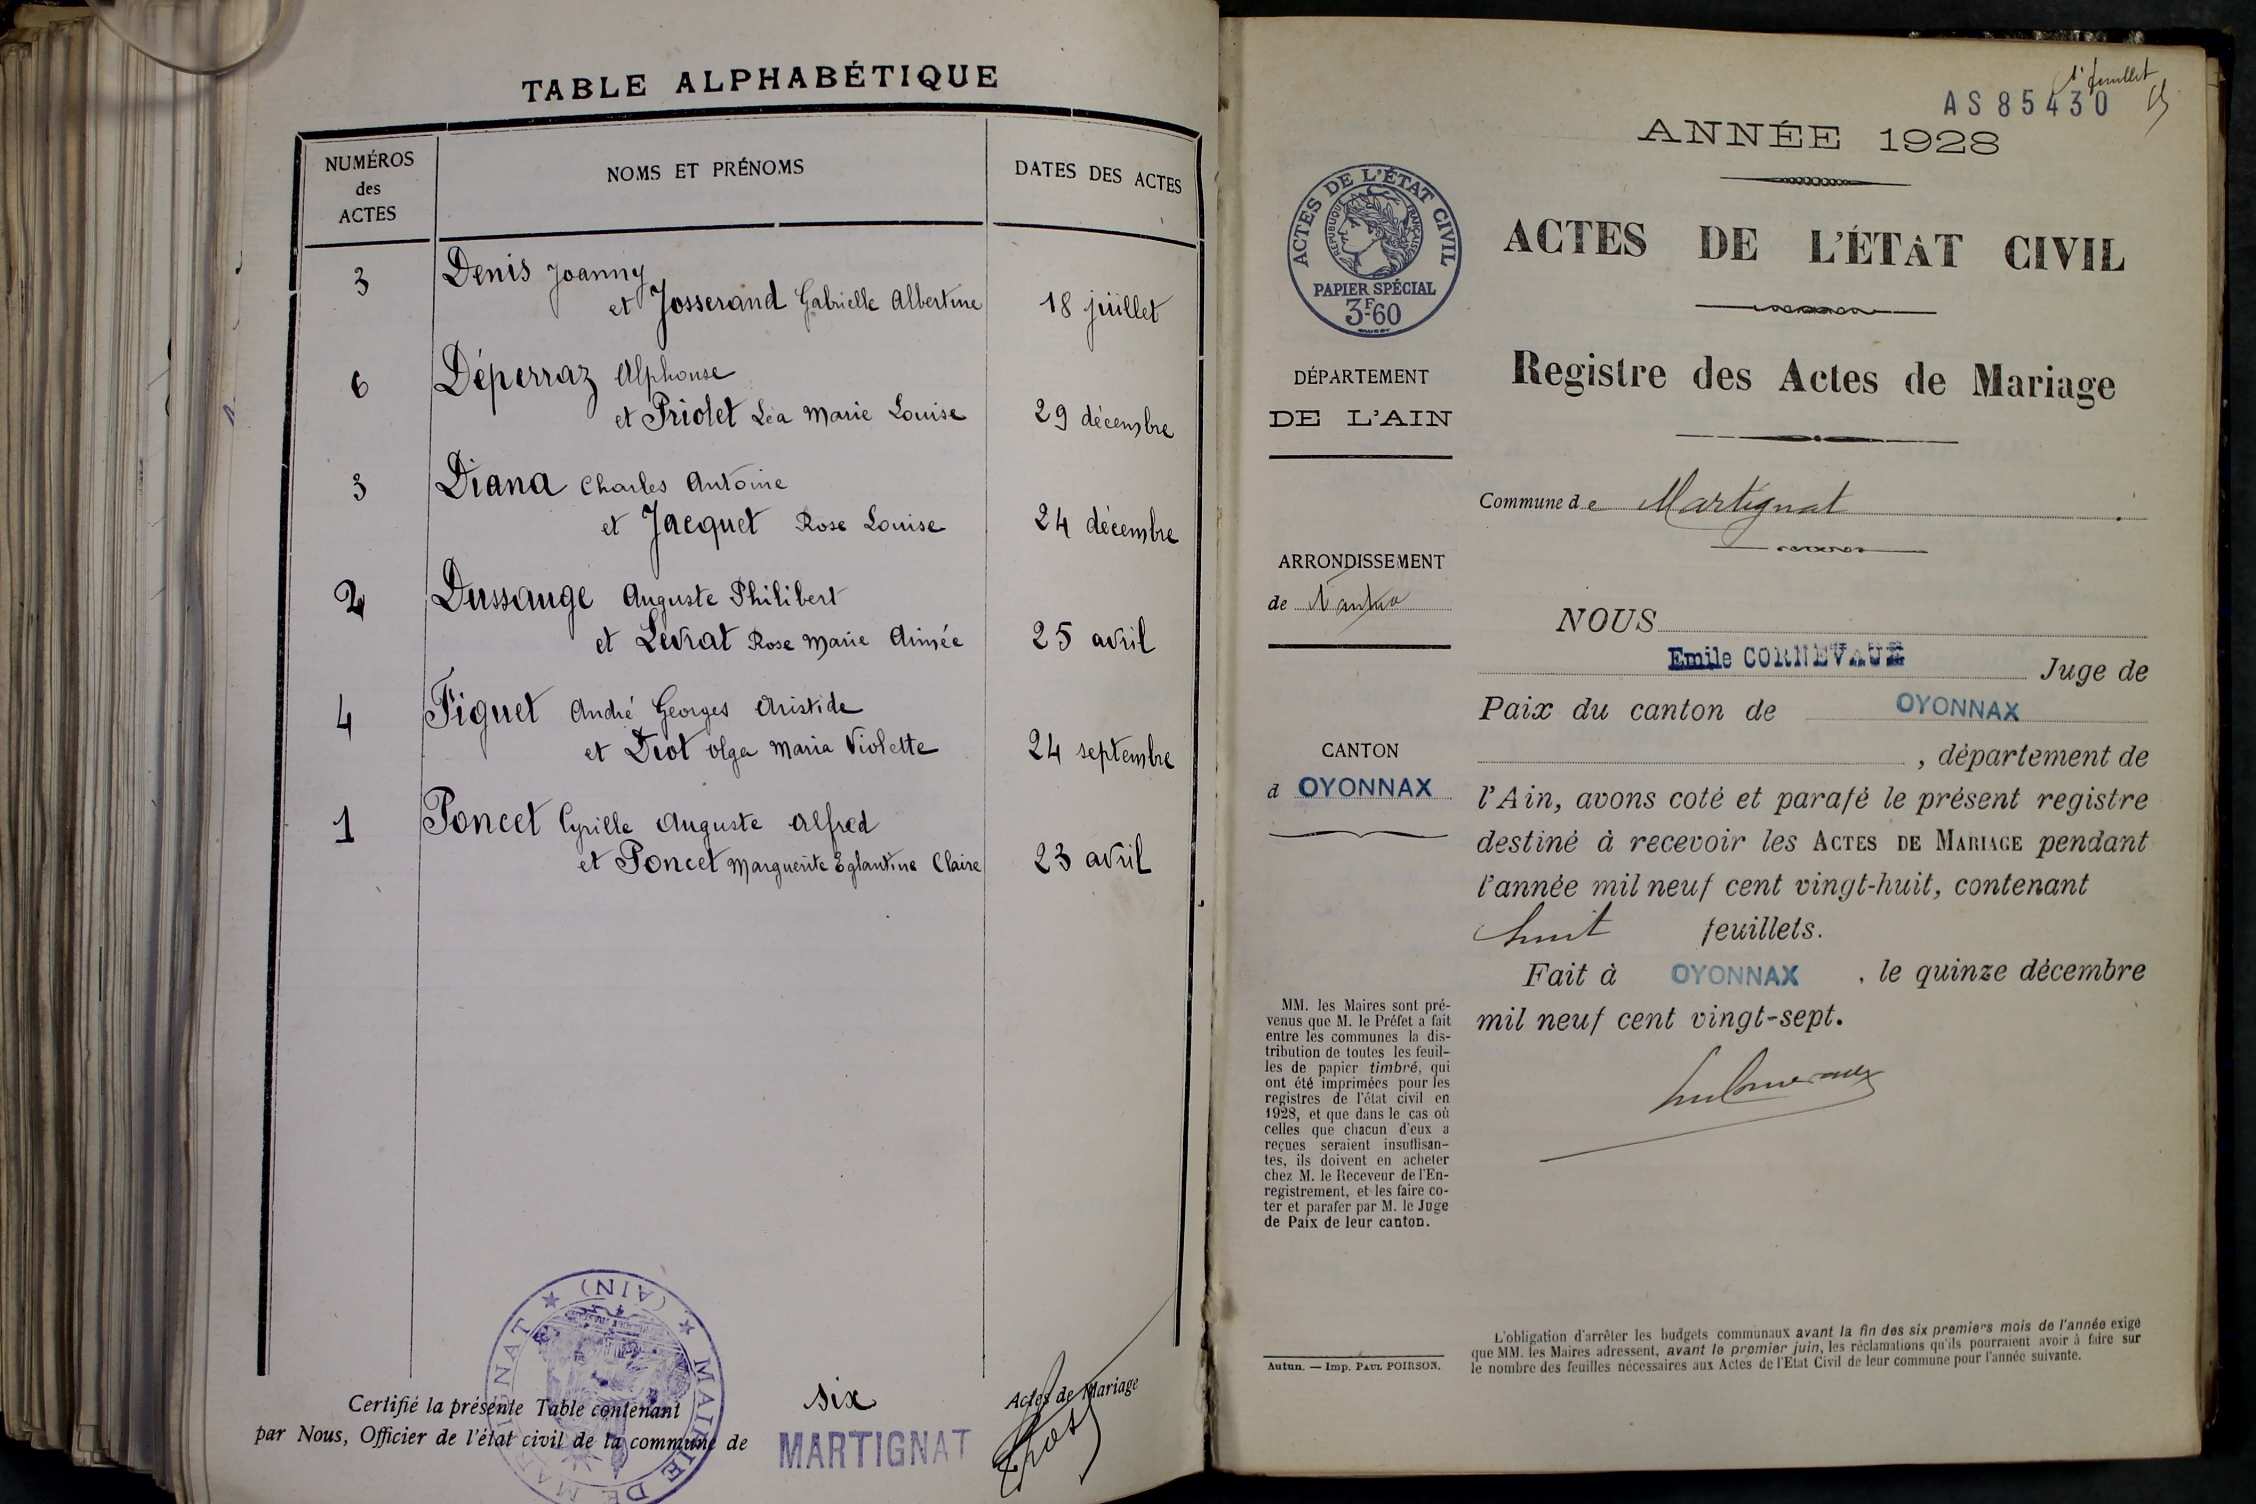 TABLE ALPHABÉTIQUE
NUMÉROS
des
ACTES
NOMS ET PRÉNOMS
DATES DES ACTES
3 Denis Joanny
et Josserand Gabrielle Albertine 18 juillet
6 Déperraz Alphonse
et Priolet Léa Marie Louise 29 décembre
3 Diana Charles Antoine
et Jacquet Rose Louise 24 décembre
2 Dussauge Auguste Philibert
et Levrat Rose Marie Aimée 25 avril
4 Figuet André Georges Aristide
et Diot Olga Maria Violette 24 septembre
1 Poncet Cyrille Auguste Alfred
et Poncet Marguerite Eglantine Claire 23 avril
Certifié la présente Table contenant six Actes de Mariage
par Nous, Officier de l'état civil de la commune de MARTIGNAT
MAIRIE DE MARTIGNAT (AIN)
1er feuillet
AS 85430
ANNÉE 1928
ACTES DE L'ÉTAT CIVIL
RÉPUBLIQUE FRANÇAISE
PAPIER SPÉCIAL
3F60
ACTES DE L'ÉTAT CIVIL
Registre des Actes de Mariage
DÉPARTEMENT
DE L'AIN
ARRONDISSEMENT
de Nantua
CANTON
d OYONNAX
MM. les Maires sont pré-
venus que M. le Préfet a fait
entre les communes la dis-
tribution de toutes les feuil-
les de papier timbré, qui
ont été imprimées pour les
registres de l'état civil en
1928, et que dans le cas où
celles que chacun d'eux a
reçues seraient insuffisan-
tes, ils doivent en acheter
chez M. le Receveur de l'En-
registrement, et les faire co-
ter et parafer par M. le Juge
de Paix de leur canton.
Autun. — Imp. PAUL POIRSON.
Commune de Martignat
NOUS
Emile CORNEVAUX Juge de
Paix du canton de OYONNAX
, département de
l'Ain, avons coté et parafé le présent registre
destiné à recevoir les ACTES DE MARIAGE pendant
l'année mil neuf cent vingt-huit, contenant
huit feuillets.
Fait à OYONNAX , le quinze décembre
mil neuf cent vingt-sept.
L'obligation d'arrêter les budgets communaux avant la fin des six premiers mois de l'année exige
que MM. les Maires adressent, avant le premier juin, les réclamations qu'ils pourraient avoir à faire sur
le nombre des feuilles nécessaires aux Actes de l'Etat Civil de leur commune pour l'année suivante.